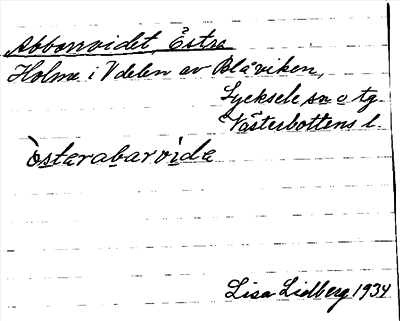 Abborrvidet, Östra
Holme i V delen av Blåviken,
Lycksele sn o tg.
Västerbottens l.
òsterabarvida
Lisa Lidberg 1934